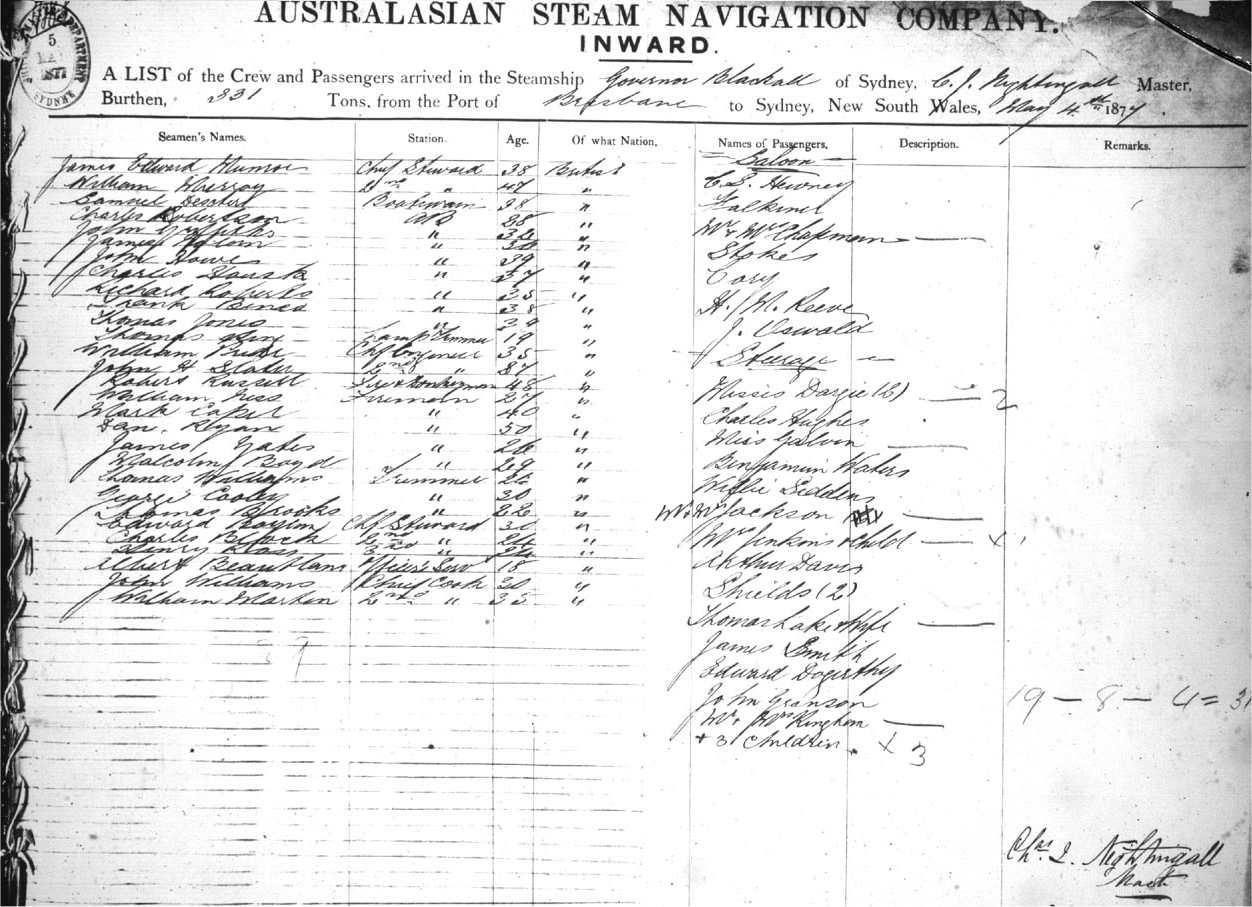 AUSTRALASIAN STEAM NAVIGATION COMPANY.
INWARD.
5
1877
SYDNEY
A LIST of the Crew and Passengers arrived in the Steamship Governor Blackall of Sydney, C. J. Nightingall Master,
Burthen, 331 Tons, from the Port of Brisbane to Sydney, New South Wales, May 4th 1877.
Seamen's Names. Station. Age. Of what Nation, Names of Passengers, Description. Remarks.
James Edward Munroe Chief Steward 38 British
William 2nd " 47 "
Samuel Boatswain 38 "
Charles Robertson AB 28 "
John Griffiths " 32 "
James " "
John Howe " 39 "
Charles " 37 "
Richard Roberts " 25 "
Frank " 38 "
Thomas Jones " 39 "
Thomas 19 "
William Pride Chf Engineer 35 "
John H Slater 2nd " 37 "
Robert Russell 48 "
William Fireman 27 "
Mark " 40 "
Dan. Ryan " 50 "
James Yates " 26 "
Malcolm Boyd " 29 "
Thomas Williams Trimmer "
George Cooley " 30 "
Thomas Brooks " 22 "
Edward Chf Steward 30 "
Charles Black 2nd " 24 "
Henry 3rd " "
Albert Officers Servt 18 "
John Williams Chief Cook 30 "
William 2nd " 35 "
Saloon
C. S.
Falkiner
Mr & Mrs Chapman
Stokes
Cory
H. M. Reeve
J. Oswald
Steerage
Misses Dargie (2) 2
Charles Hughes
Miss Galvin
Benjamin Waters
Willie Siddens
Mr & Mrs Jackson
Mrs Jenkins & Child
Arthur Davis
Shields (2)
Thomas Lake & Wife
James Smith
Edward Dogerthy
John Granson
Mr & Mrs Kingham
+ 3 Children. X 3
19 - 8 - 4 = 31
Chas. J. Nightingall
Mast